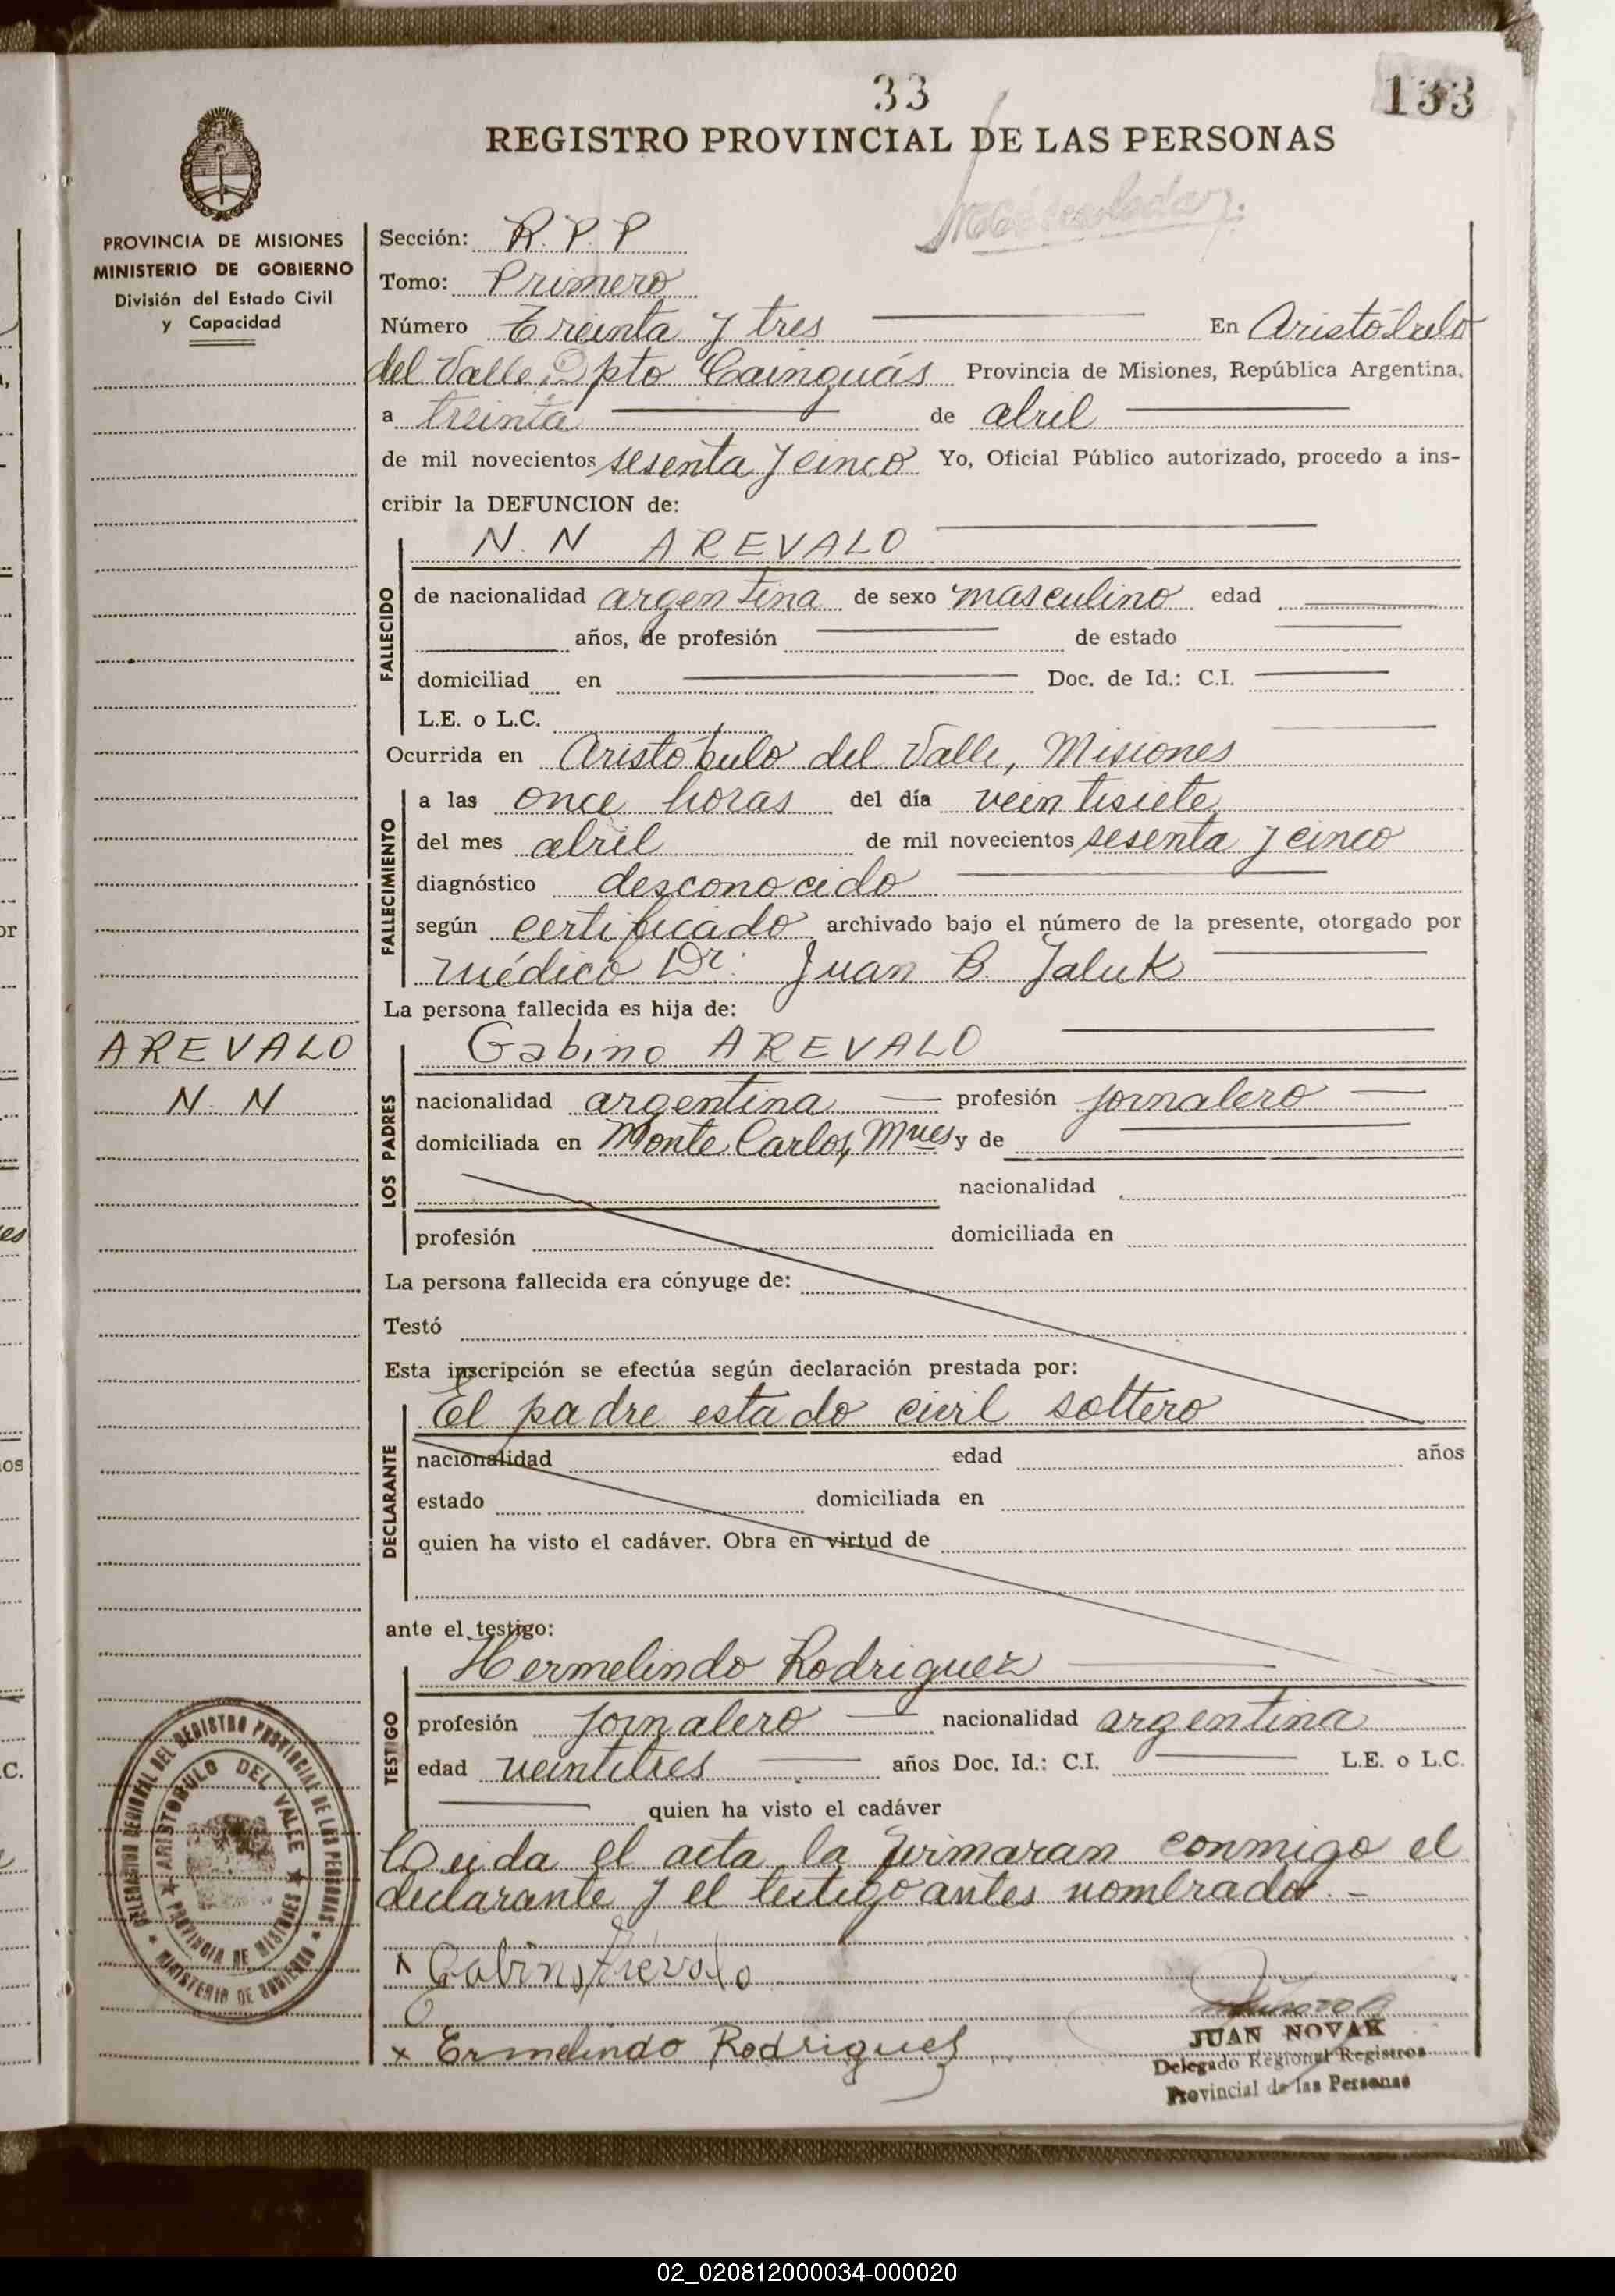 33
133
REGISTRO PROVINCIAL DE LAS PERSONAS
PROVINCIA DE MISIONES
MINISTERIO DE GOBIERNO
División del Estado Civil
y Capacidad
Sección: R. P. P
Tomo: Primero
Número Treinta y tres En Aristóbulo
del Valle, Dpto Cainguás Provincia de Misiones, República Argentina,
a treinta de abril
de mil novecientos sesenta y cinco Yo, Oficial Público autorizado, procedo a ins-
cribir la DEFUNCION de:
N. N AREVALO
FALLECIDO
de nacionalidad argentina de sexo masculino edad
años, de profesión de estado
domiciliad en Doc. de Id.: C.I.
L.E. o L.C.
Ocurrida en Aristóbulo del Valle, Misiones
FALLECIMIENTO
a las once horas del día veintisiete
del mes abril de mil novecientos sesenta y cinco
diagnóstico desconocido
según certificado archivado bajo el número de la presente, otorgado por
médico Dr: Juan B. Jaluk
La persona fallecida es hija de:
AREVALO
N. N
Gabino AREVALO
LOS PADRES
nacionalidad argentina profesión jornalero
domiciliada en Monte Carlos, Mnes y de
nacionalidad
profesión domiciliada en
La persona fallecida era cónyuge de:
Testó
Esta inscripción se efectúa según declaración prestada por:
El padre estado civil soltero
DECLARANTE
nacionalidad edad años
estado domiciliada en
quien ha visto el cadáver. Obra en virtud de
ante el testigo:
Hermelindo Rodriguez
TESTIGO
profesión jornalero nacionalidad argentina
edad veintitres años Doc. Id.: C.I. L.E. o L.C.
quien ha visto el cadáver
Leida el acta la firmaran conmigo el
declarante y el testigo antes nombrado. -
DELEGACION REGIONAL DEL REGISTRO PROVINCIAL DE LAS PERSONAS
ARISTOBULO DEL VALLE
PROVINCIA DE MISIONES
MINISTERIO DE GOBIERNO
x Gabino Arevalo
x Ermelindo Rodrigues
JUAN NOVAK
Delegado Regional Registros
Provincial de las Personas
02_020812000034-000020